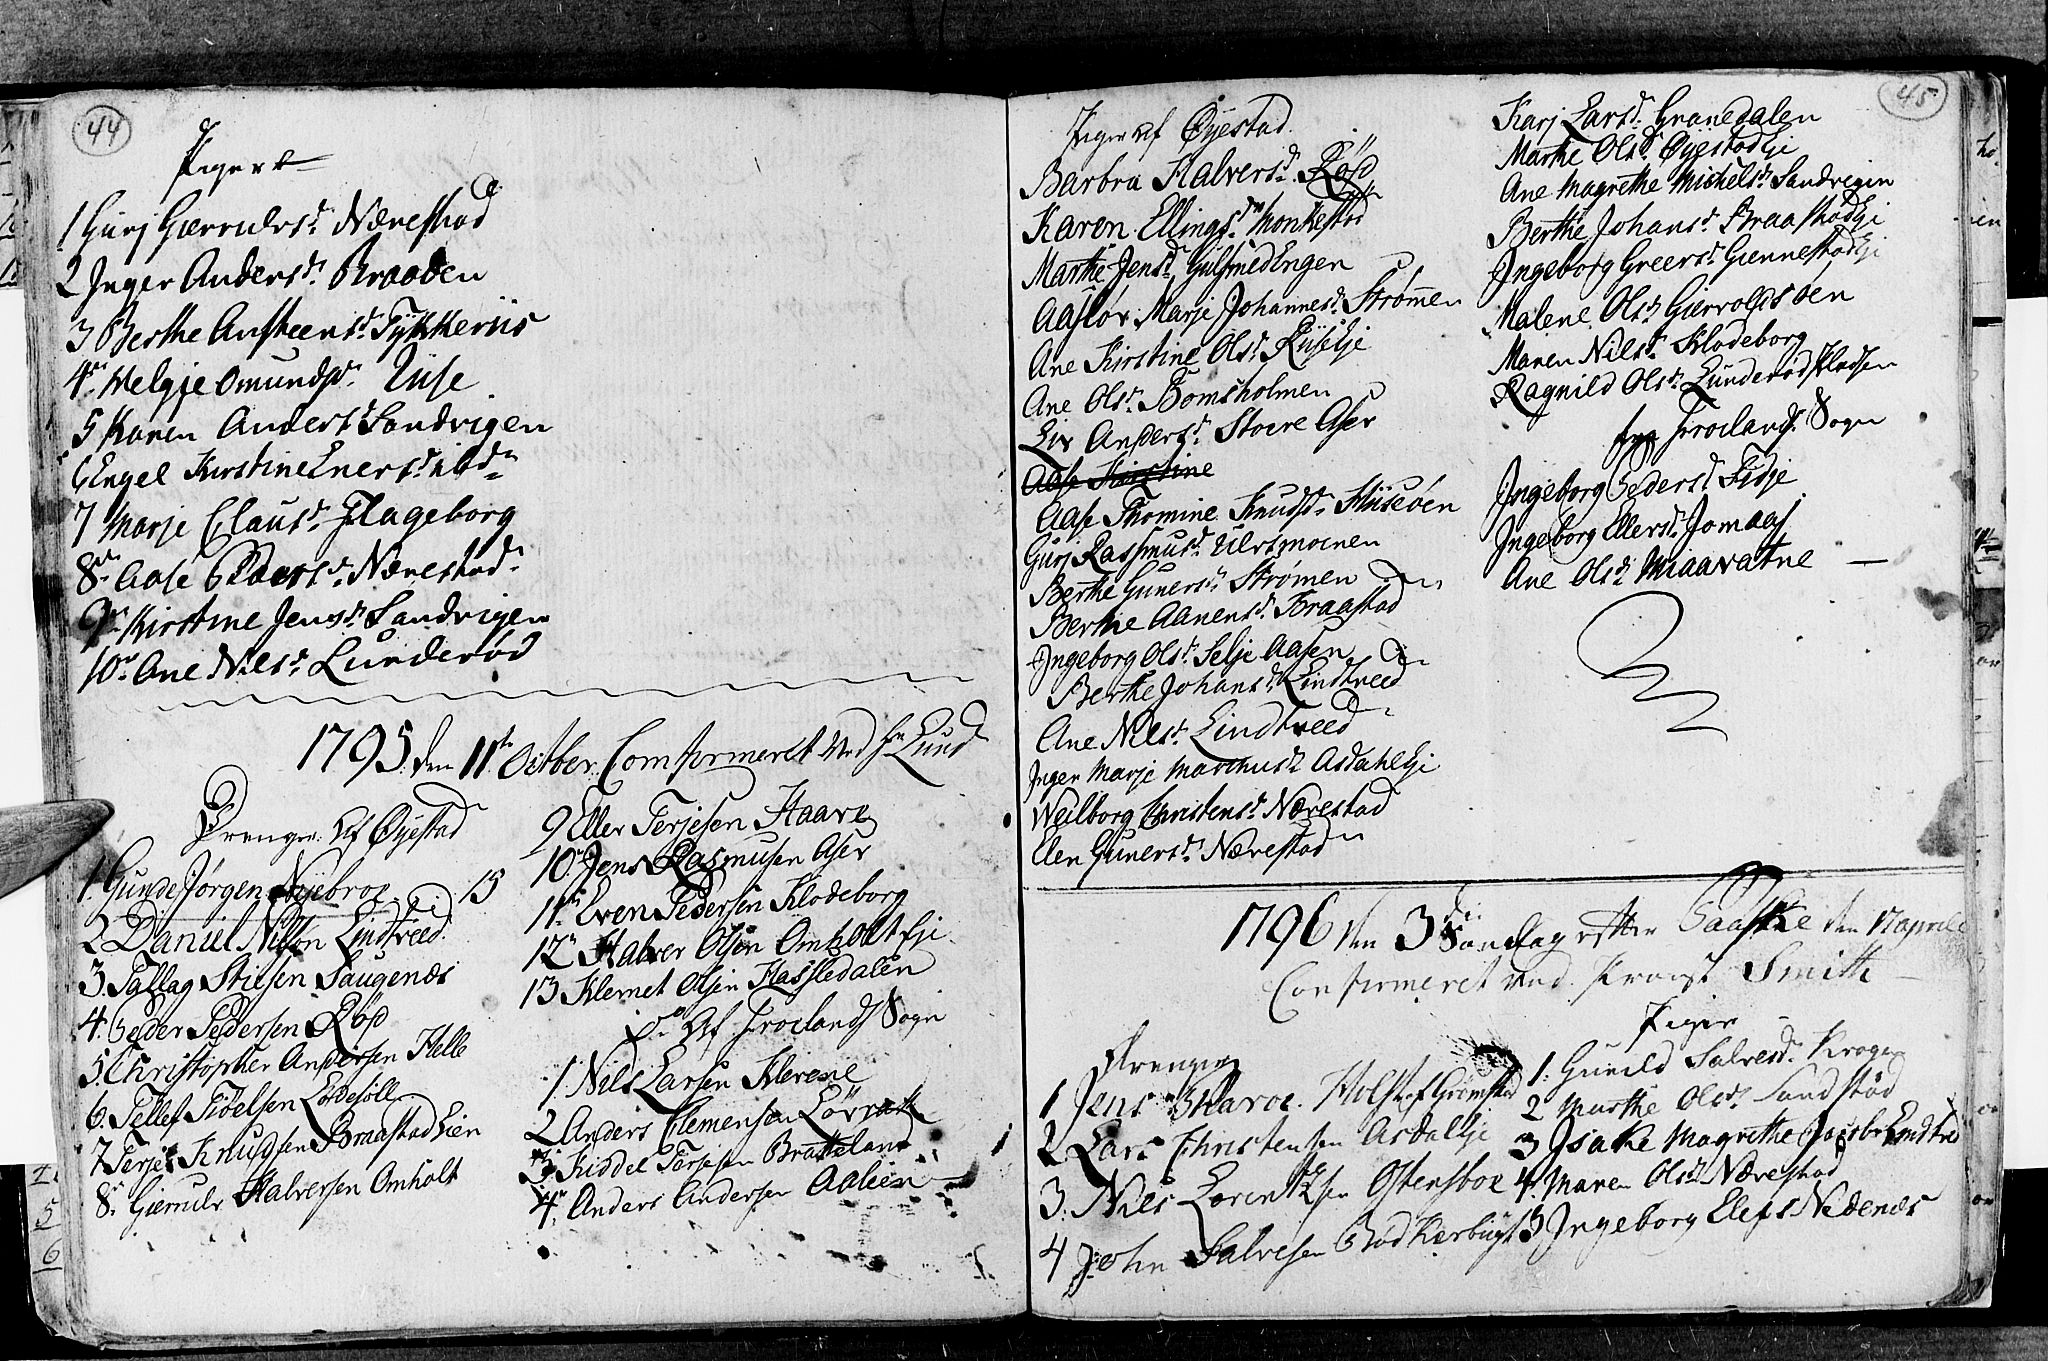 44
Piger
1 Gurj Gierruls d. Nærestad
2 Inger Anders d. Braaden
3 Berthe Ansteens d. Tÿkkeriis
4 Helgje Omunds d.
5 Karen Anders d. Sandvigen
6 Engel Kirstine Eners d.
7 Marje Claus d. Flageborg
8 Aase Peders d. Nærestad
9 Kirstine Jens d. Sandvigen
10 Ane Nils d. Lunderød
1795 den 11te Octber Comfirmeret ved Hr Lund
Drenger Af Øyestad
1. Gunde Jørgen Nyebroe 15
2 Daniel Nilsøn Lindtveed
3. Tallag Stiesen Saugenæs
4. Peder Pedersen Røsd
5. Christopher Andersen Helle
6. Tellef Tidelsen Lødesøll
7 Terje Knudsen Braastad Eien
8. Gierrulv Halversen Omholt
9 Eller Terjesen Haave
10. Jens Rasmusen Aser
11 Even Pedersen Klodeborg
12 Halver Olsen Omholt Eje
13 Klemet Olsen Hassledalen
Do Af Froelands Sogn
1. Nils Larsen Klevene
2 Anders Clemensen Løvrak
3 Kiddel Terjesen Bratteland
4. Anders Andersen Aalien
45
Piger Af Øyestad
Barbra Halvers d. Røsd
Karen Ellings d. Monkestad
Marthe Jens d. Gulsmedengen
Aasløv Marje Johannes d. Strømen
Ane Kirstine Ols d.
Ane Ols d. Bomsholmen
Liv Anders d. Stoere Aser
Aase Kirstine
Aase Thomine Knuds d. Huseøen
Gurj Rassmus d. Ulersmoenen
Berthe Guners d. Strømen
Berthe Aanens d. Braastad
Ingeborg Ols d. Selje Aasen
Berthe Johans d. Lindtveed
Ane Nils d. Lindtveed
Inger Marje Marchus d. Asdahl Eje
Weilborg Christens d. Nærestad
Elen Guners d. Nærestad
Karj Lars d. Granedalen
Marthe Ols d. Øyestad Eje
Ane Magrethe Michels d. Sandvigen
Berthe Johans d. Braastad Eje
Ingeborg Greers d. Giennestad Eje
Malene Ols d. Gierrolds øen
Maren Nils d. Klodeborg
Ragnild Ols d. Lunderød Pladsen
fra Froelands Sogn
Ingeborg Peders d. Fidje
Ingeborg Ellers d. Jomaas
Ane Ols d. Miaavatne
1796 den 3die Søndag efter Paaske den 17 April
Confirmeret ved Provst Smith
Drenger
1 Jens Skaroe Holst af Grømstad
2 Lars Christensen Asdal Eje
3. Nils Lorentzen Ostensboe
4 John Salvesen Bødkerbugt
Piger
1. Gunild Salves d. Krogen
2 Marthe Ols d. Sandstød
3 Isake Magrethe Jacobs Lindtve
4. Maren Ols d. Nærestad
5 Ingeborg Elefs Nedenæs